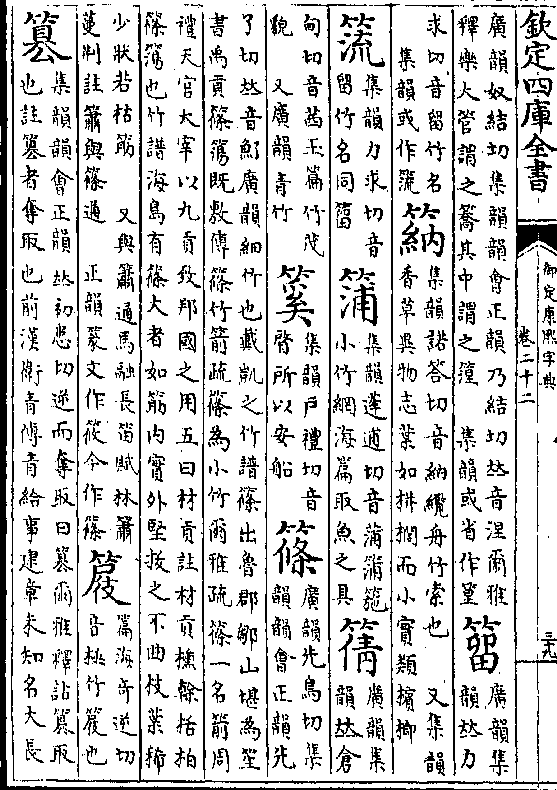 欽定四庫全書
御定康熙字典
卷二十二
三十九
廣韻奴結切集韻韻會正韻乃結切𠀤音涅爾雅
釋樂大管謂之簥其中謂之篞 集韻或省作䇣 䉧 廣韻集
韻𠀤力
求切音留竹名
集韻或作䉧 䈫 集韻諾答切音納纜舟竹索也 又集韻
香草異物志葉如栟櫚而小實類檳榔
集韻力求切音
留竹名同䉧 蒲 集韻蓬逋切音蒲蒲箷
小竹網海篇取魚之具 箐 廣韻集
韻𠀤倉
甸切音茜玉篇竹茂
貌 又廣韻青竹 集韻戶禮切音
謑所以安船 篠 廣韻先鳥切集
韻韻會正韻先
了切𠀤音𩺰廣韻細竹也戴凱之竹譜篠出魯郡鄒山堪為笙
書禹貢篠簜既敷傳篠竹箭疏篠為小竹爾雅疏篠一名箭周
禮天官大宰以九貢致邦國之用五曰材貢註材貢櫄幹栝柏
篠簜也竹譜海島有篠大者如筯內實外堅拔之不曲枝葉稀
少狀若枯筯 又與簫通馬融長笛賦林簫
蔓荆註簫與篠通 正韻篆文作筱今作篠 篇海奇逆切
音 桃竹 也
篡 集韻韻會正韻𠀤初患切逆而奪取曰篡爾雅釋詁篡取
也註篡者奪取也前漢衛青傳青給事建章未知名大長